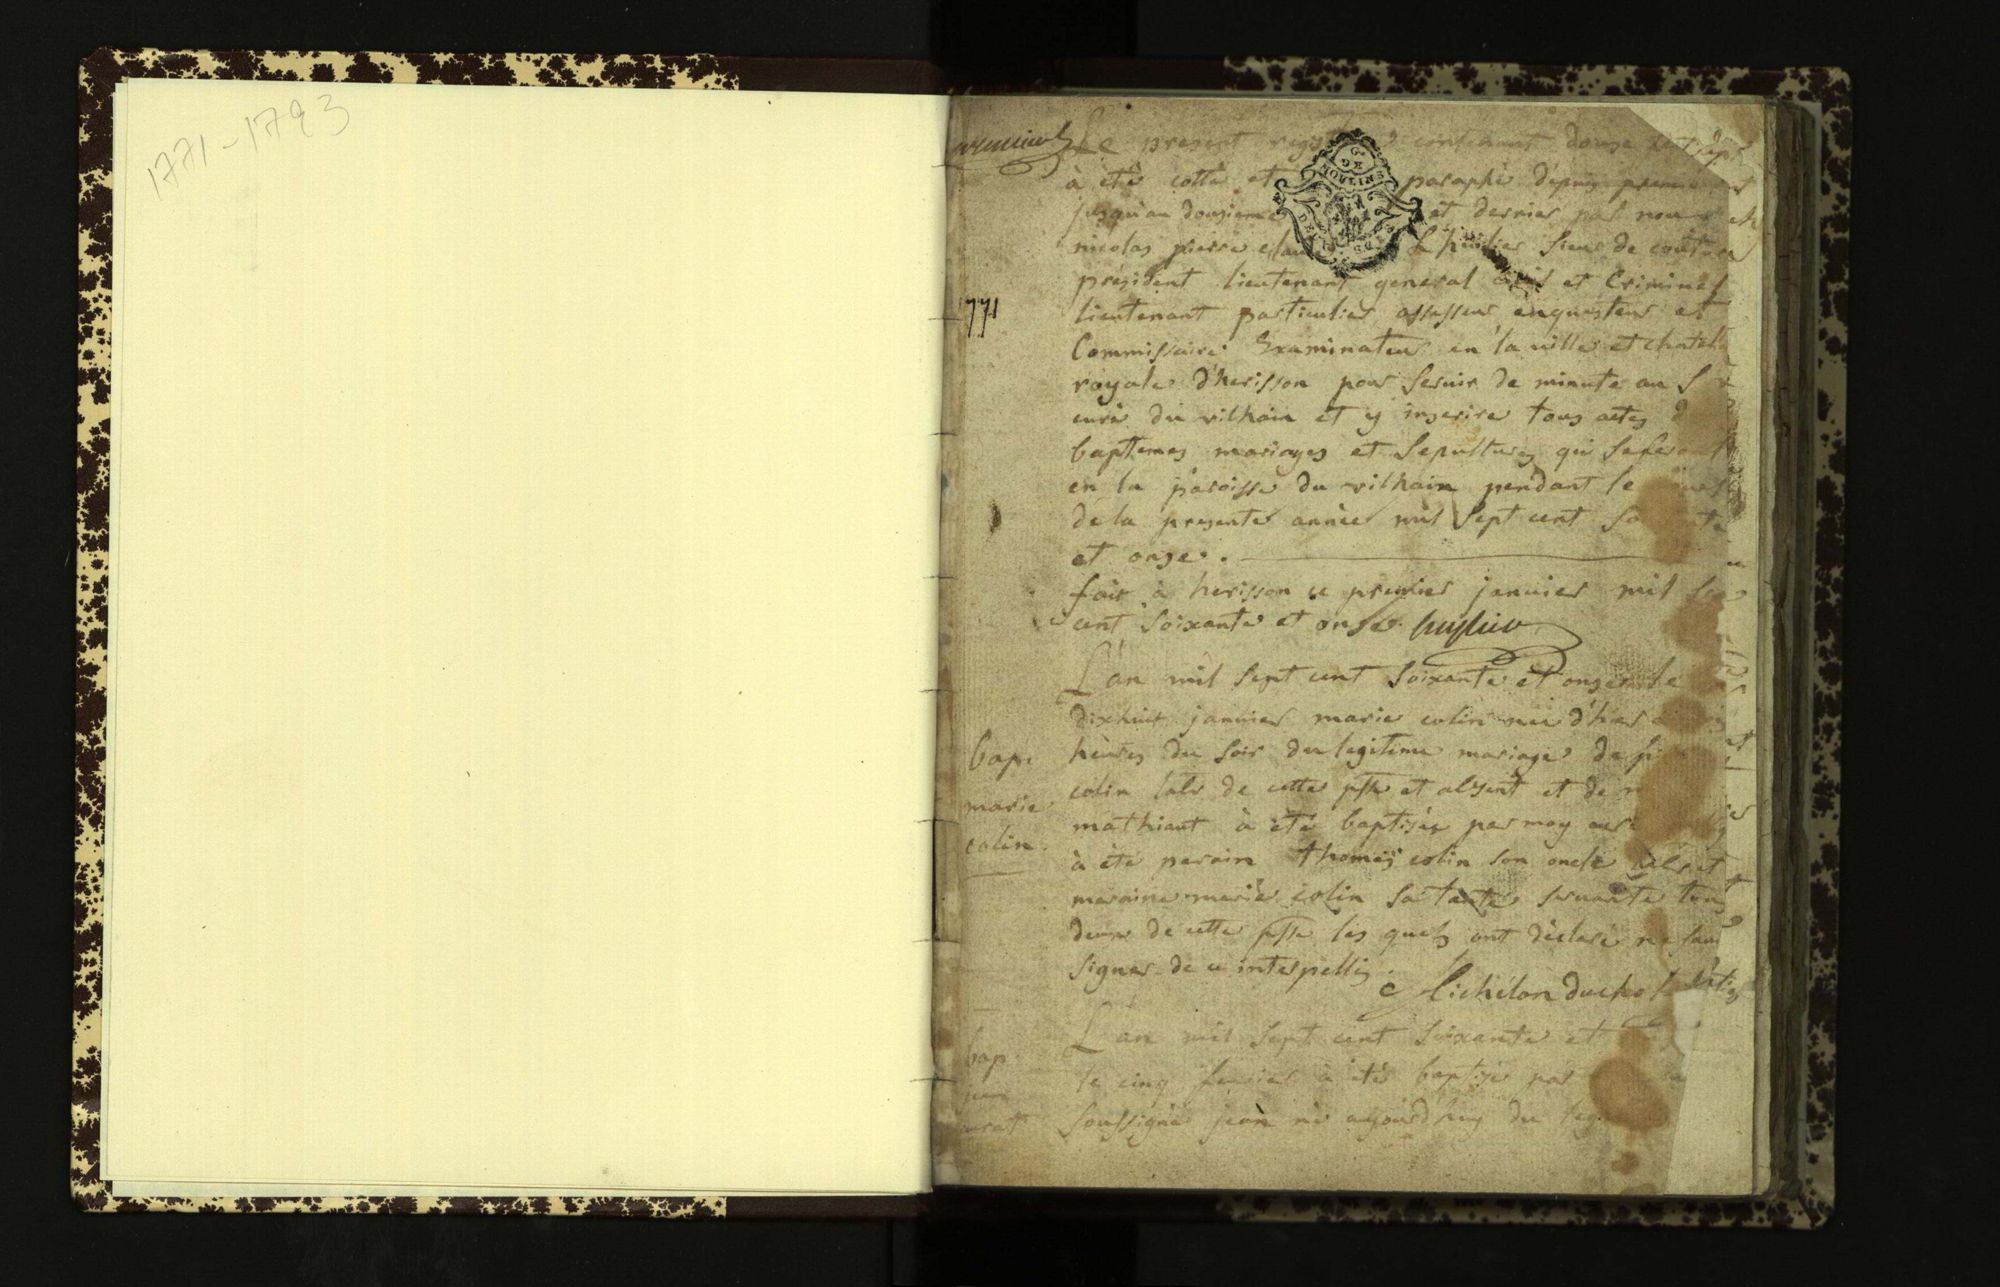 1771-1793
Le present registre contenant douze
à été cotté et paraphé depuis premier
jusqu'au douzieme et dernier par nous
nicolas pierre L'huilier sieur de
president lieutenant general civil et Criminel
lieutenant particulier assesseur enquesteur et
Commissaire Examinateur en la ville et chatel
royale d'herisson pour servir de minute au S
curé du vilhain et y inserire tous actes d
baptemes mariages et sepultures qui se feront
en la paroisse du vilhain pendant le
de la presente année mil sept cent so te
et onze.
fait à herisson ce premier janvier mil se
cent soixante et onze. huylier
1771
G. DE MOULINS
L'an mil sept cent soixante et onze le
dixhuit janvier marie colin née d'hier
heures du soir du legitime mariage de pi
colin labr de cette psse et absent et de m
mathiaut à été baptisée par moy curé
à été parain thomas colin son oncle et
maraine marie colin sa tante servante tous
deux de cette psse les quels ont déclaré ne
signer de ce interpellés.
Michelon
bap.
marie
colin.
L'an mil sept cent soixante et
le cinq fevrier à été baptisé par
soussigné jean né aujourd'huy du leg
bap.